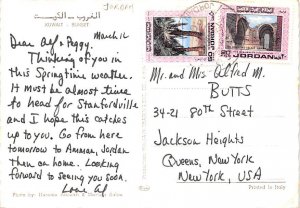 الغروب - الكويت
KUWAIT - SUNSET
JORDAN
March 12
Dear Alf & Peggy,
Thinking of you in
this Springtime weather.
It must be almost time
to head for Stanfordville
and I hope this catches
up to you. Go from here
tomorrow to Amman, Jordan
Then on home. Looking
forward to seeing you soon.
Love Al
JORDAN
JORDAN
Mr. and Mrs Alfred M.
BUTTS
34-21 80th Street
Jackson Heights
Queens, New York
New York, USA
Printed in Italy